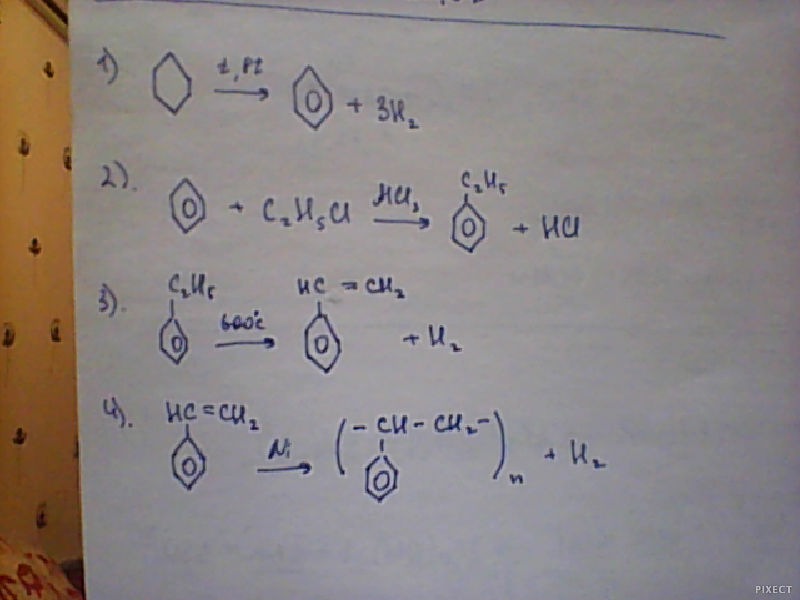 1) t, Pt → + 3H₂
2). + C₂H₅Cl AlCl₃ → C₂H₅ + HCl
3). C₂H₅ 600°C → HC = CH₂ + H₂
4). HC=CH₂ Ni → (- CH - CH₂-)n + H₂
PIXECT